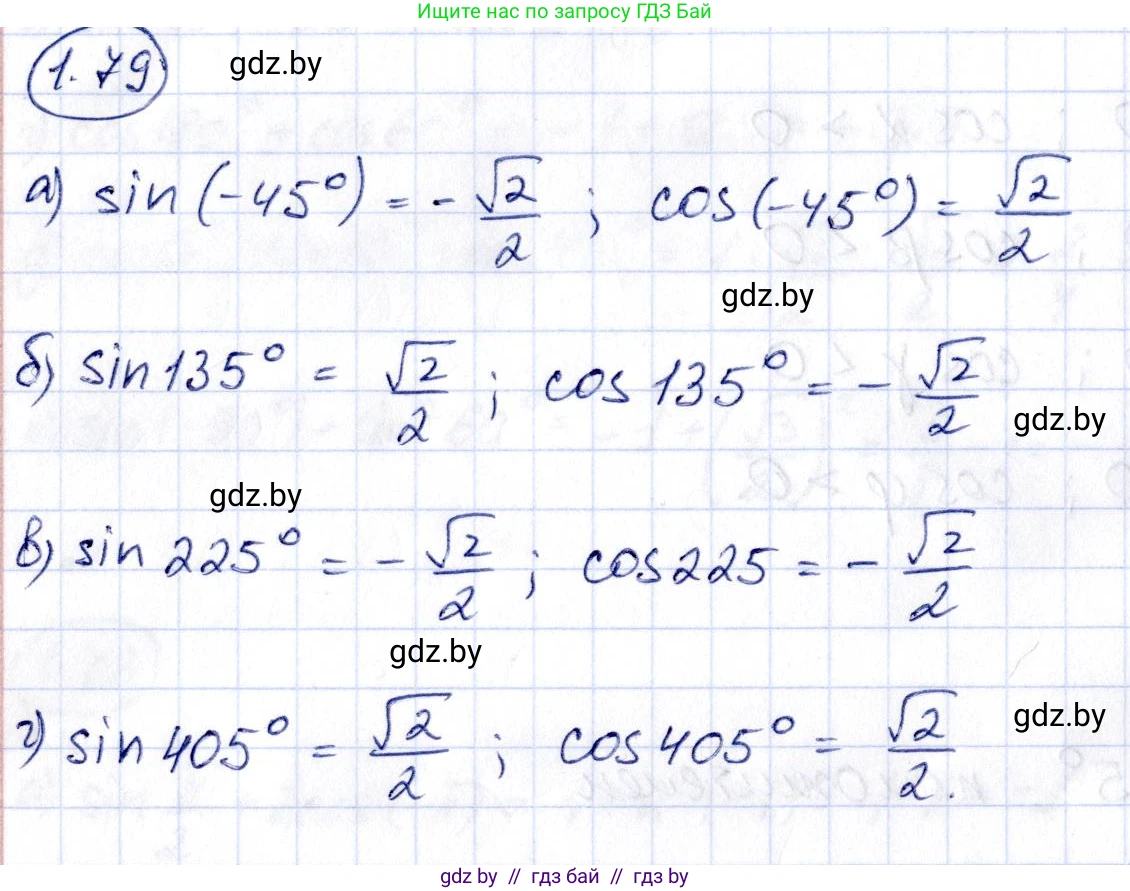 Ищите нас по запросу ГДЗ Бай
1.79 gdz.by
а) sin(-45°) = -√2/2 ; cos(-45°) = √2/2
gdz.by
б) sin135° = √2/2 ; cos135° = -√2/2
gdz.by
gdz.by
в) sin225° = -√2/2 ; cos225 = -√2/2
gdz.by
gdz.by
г) sin405° = √2/2 ; cos405° = √2/2.
gdz.by // гдз бай // гдз by